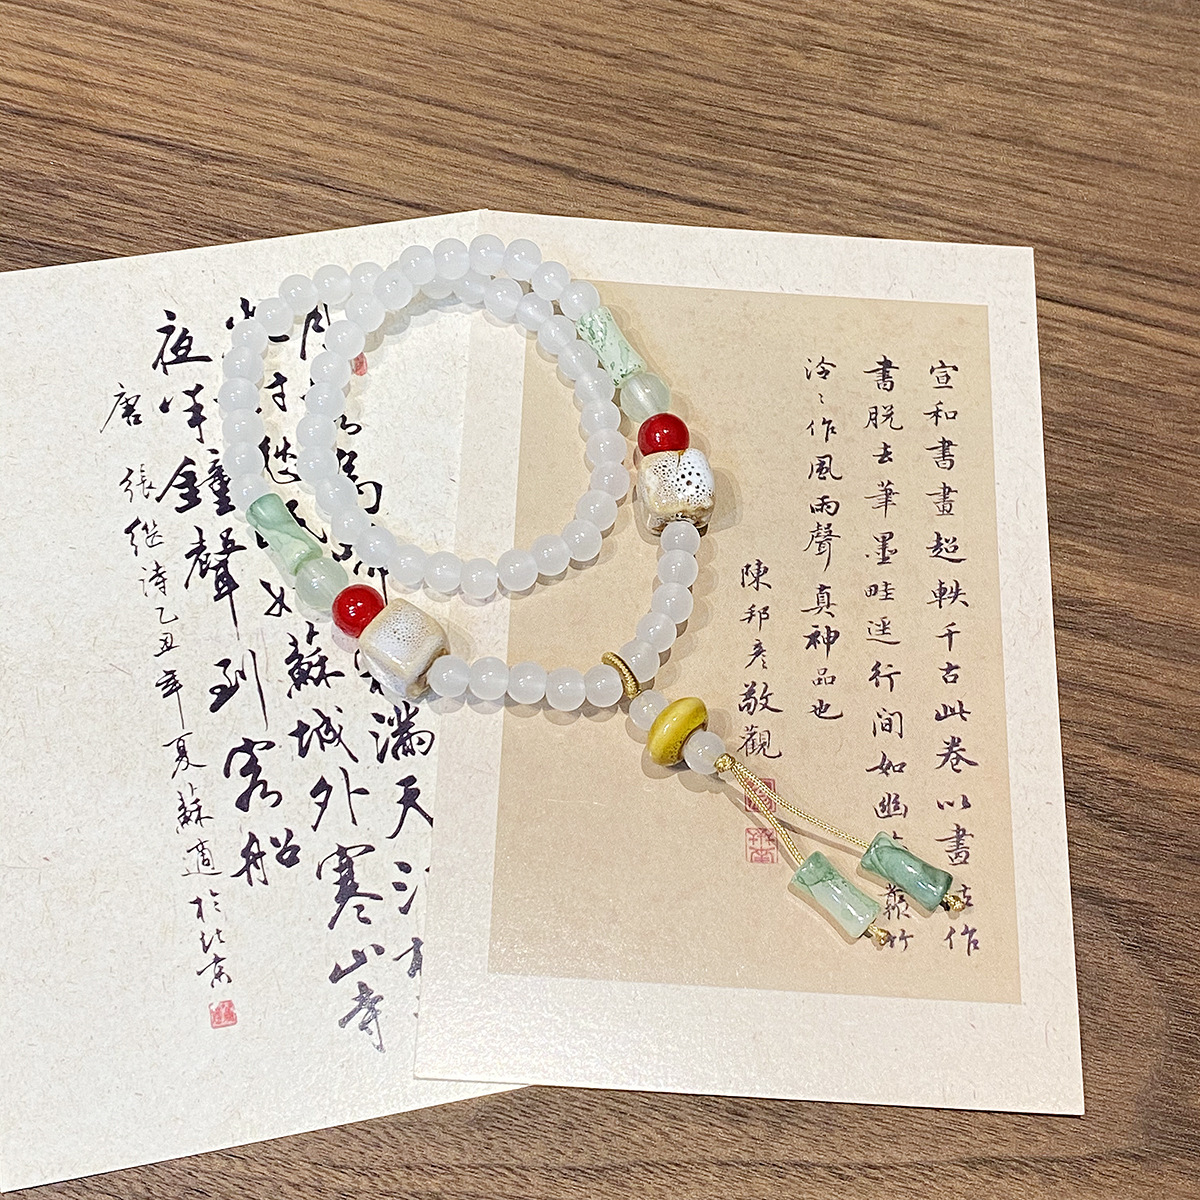 宣和書畫超軼千古此卷以畫法作
書脱去筆墨畦逕行间如幽叢竹
泠〻作風雨聲真神品也
陳邦彦敬觀
月烏滿天江
火对愁眠姑蘇城外寒山寺
夜半鐘聲到客船
唐張继诗乙丑年夏蘇適於北京